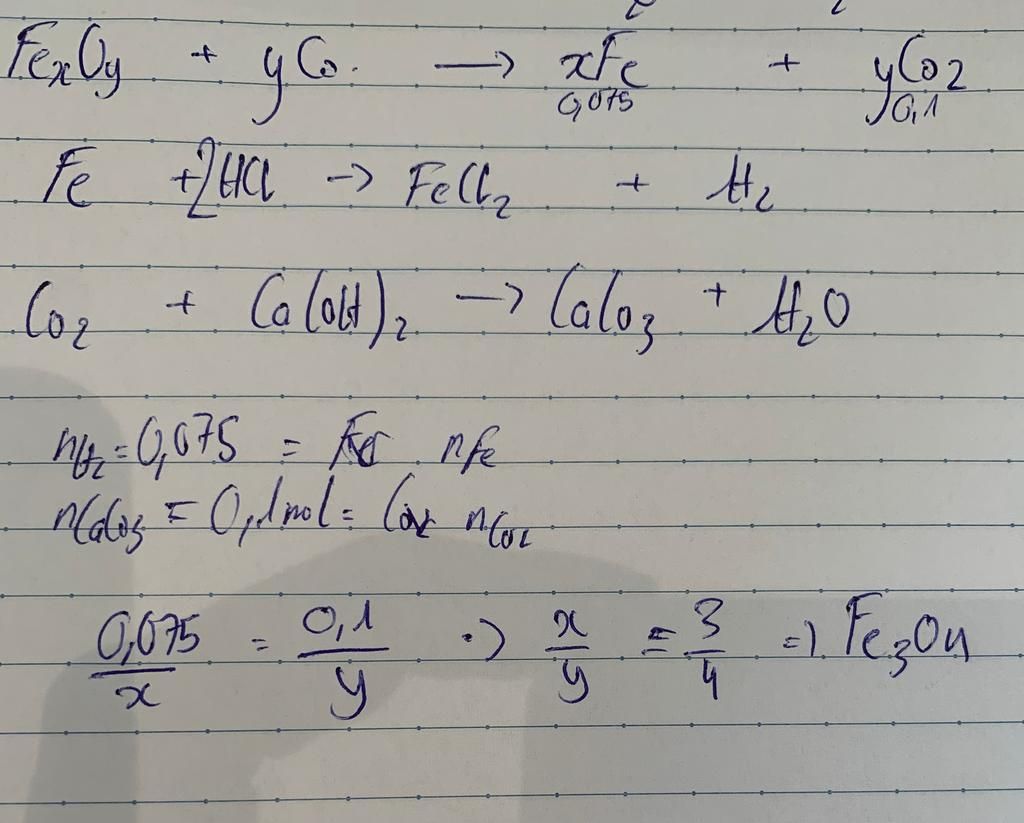 FexOy + yCo. → xFe + yCo2
0,075 0,1
Fe + 2HCl → FeCl2 + H2
Co2 + Ca(OH)2 → CaCo3 + H2O
nH2 = 0,075 = nFe
nCaCo3 = 0,1mol = nCo2
0,075/x = 0,1/y => x/y = 3/4 => Fe3O4